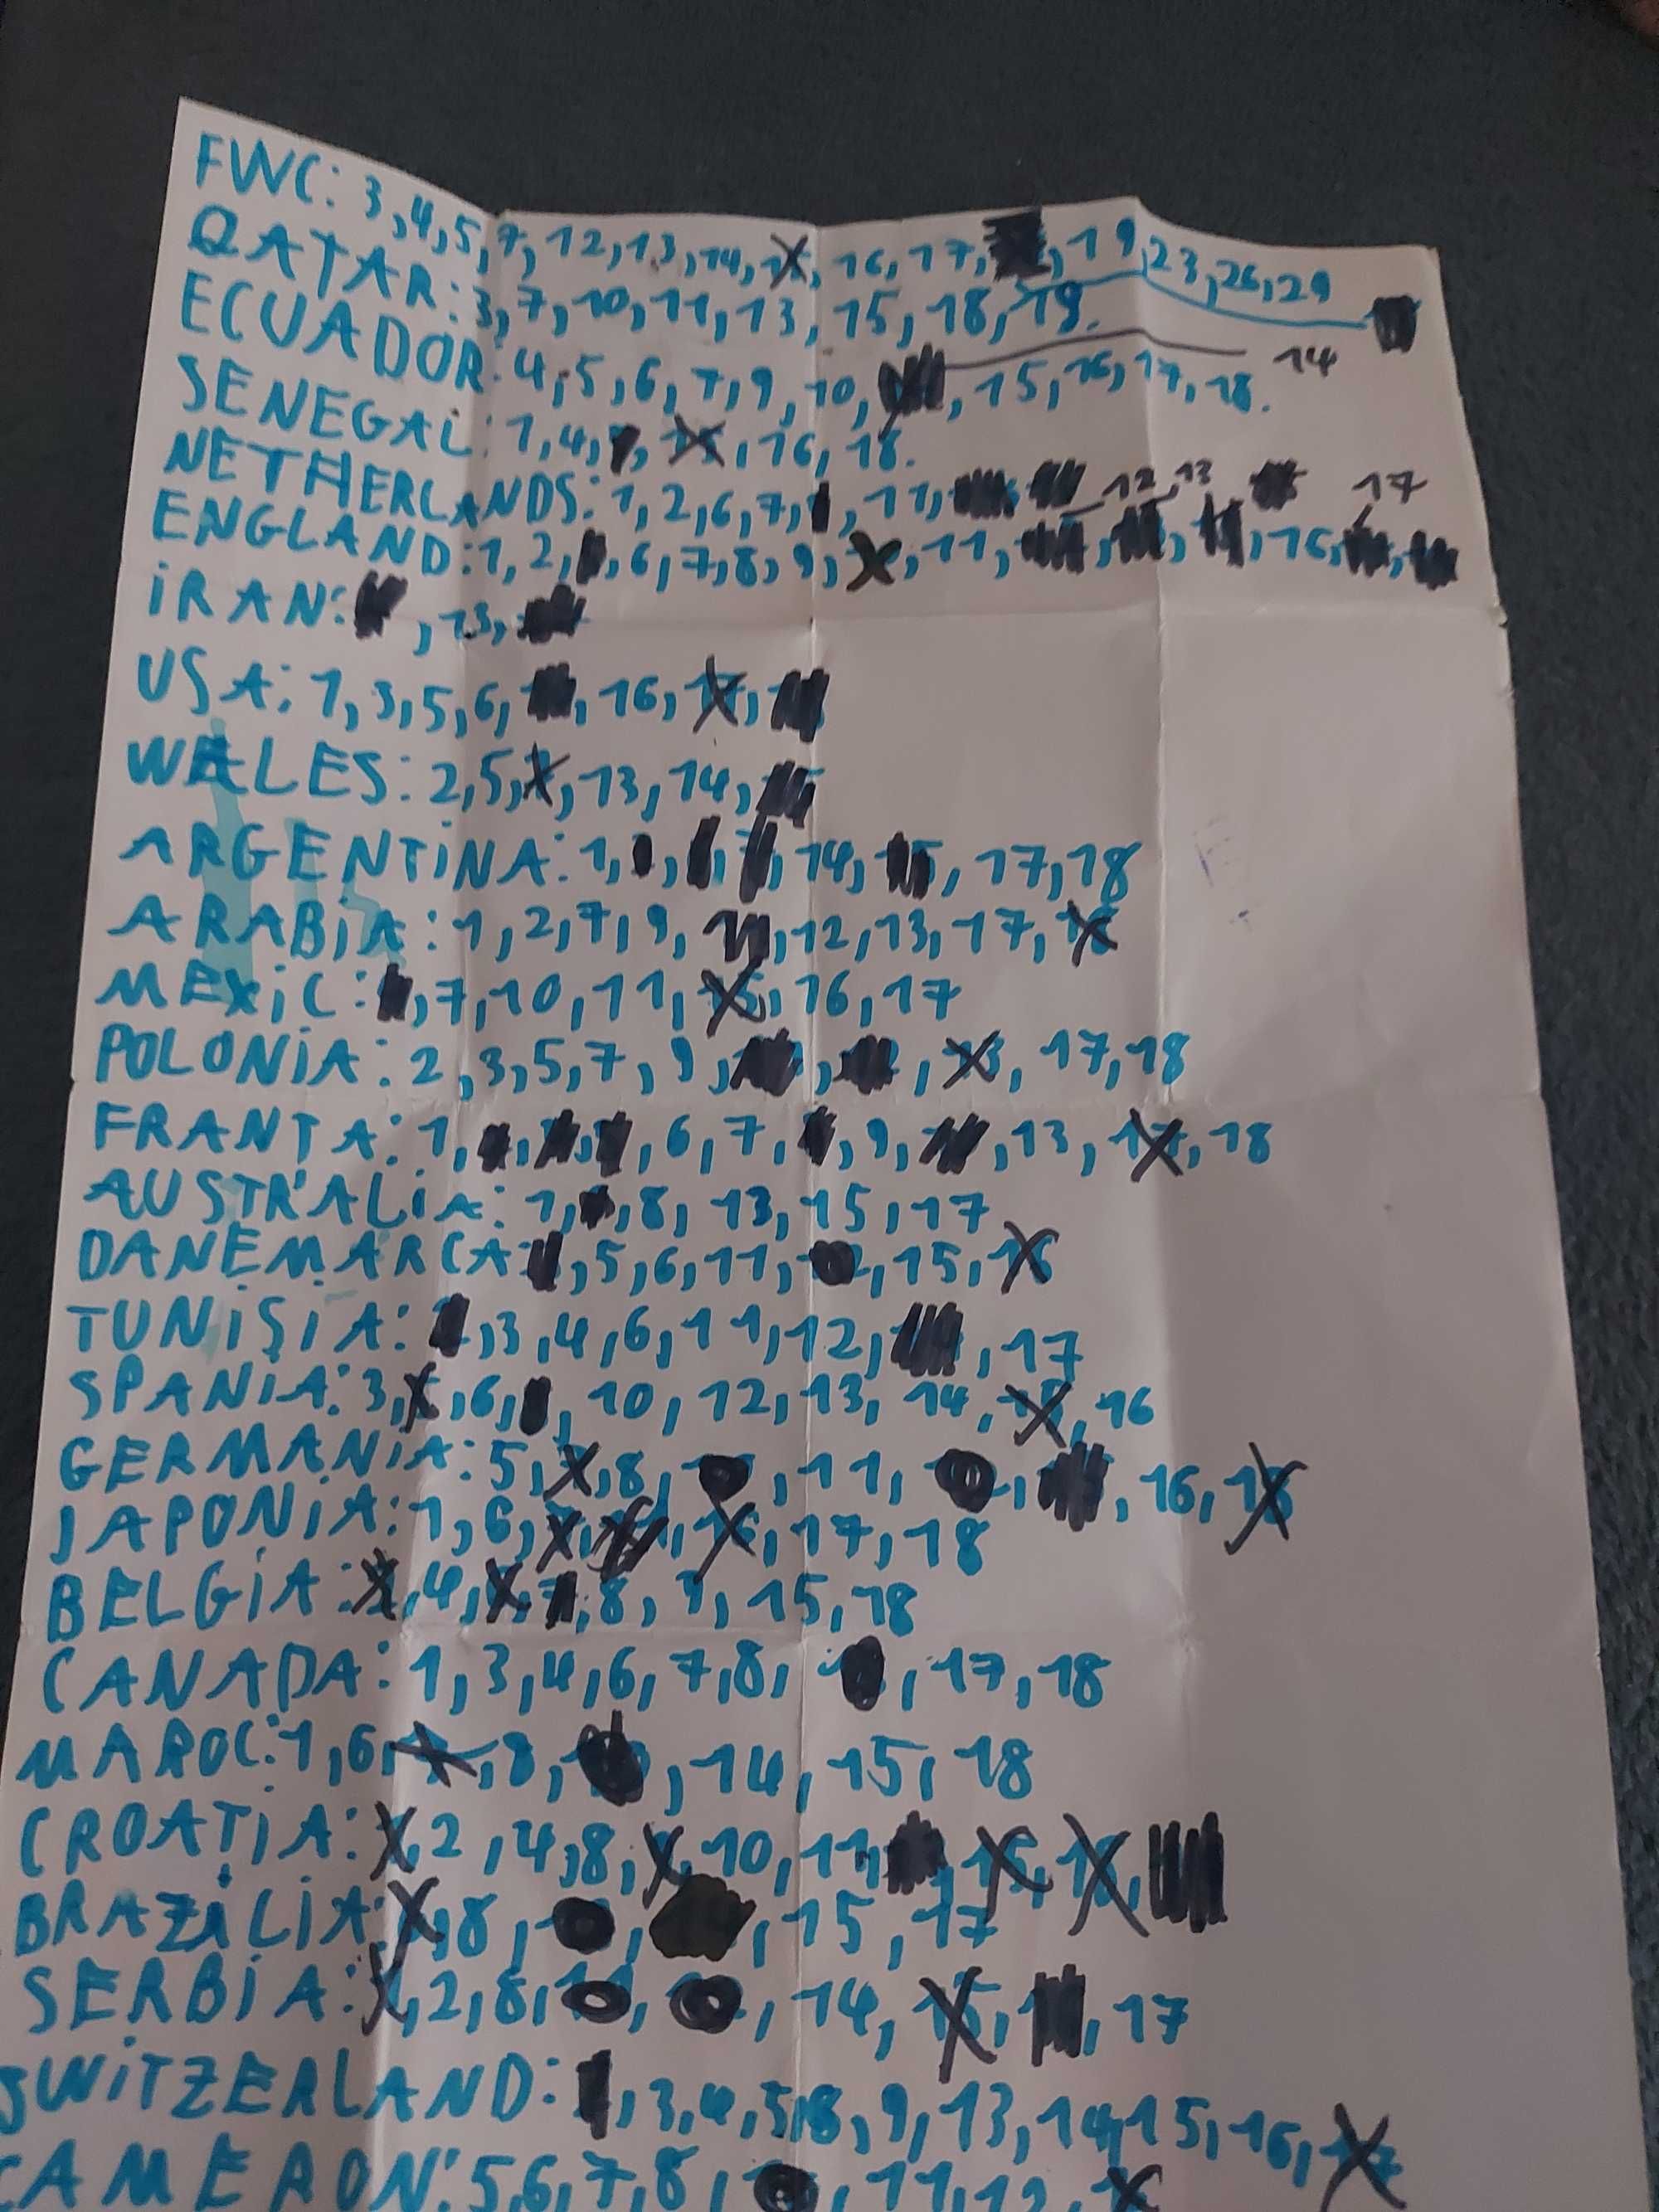 FWC: 3,4,5,7,12,13,14, 16,17, 19,23,26,29
QATAR: 3,7,10,11,13,15,18,19.
ECUADOR: 4,5,6,7,9,10, 15,16,17,18. 14
SENEGAL: 1,4, 16,18.
NETHERLANDS: 1,2,6,7, 11, 12,13 17
ENGLAND: 1,2, 6,7,8,9, 11, 16,
iRAN: ,13,
USA: 1,3,5,6, 16,
WELES: 2,5, 13,14,
ARGENTiNA: 1, 14, 17,18
ARABiA: 1,2,7,9, 11,12,13,17,
MEXiC: ,7,10,11, 16,17
POLONiA: 2,3,5,7,9, 17,18
FRANTA: 1, 6,7, 9, 13, 18
AUSTRALiA: 1, 8,13,15,17
DANEMARCA: ,5,6,11, 15,
TUNiSiA: ,3,4,6,11,12, 17
SPANiA: 3, 6, 10,12,13,14, 16
GERMANiA: 5, 8, 11, 16,
JAPONiA: 1,6, 17,18
BELGiA: ,4, 8,9,15,18
CANADA: 1,3,4,6,7,8, 17,18
MAROC: 1,6, 8, 14,15,18
CROAȚiA: 2,4,8, 10,11,
BRAZiLiA: 8, 15,17
SERBiA: ,2,8, 14, 17
SWiTZERLAND: ,3,4,5,8,9,13,14,15,16,
CAMERON: 5,6,7,8, 11,12,